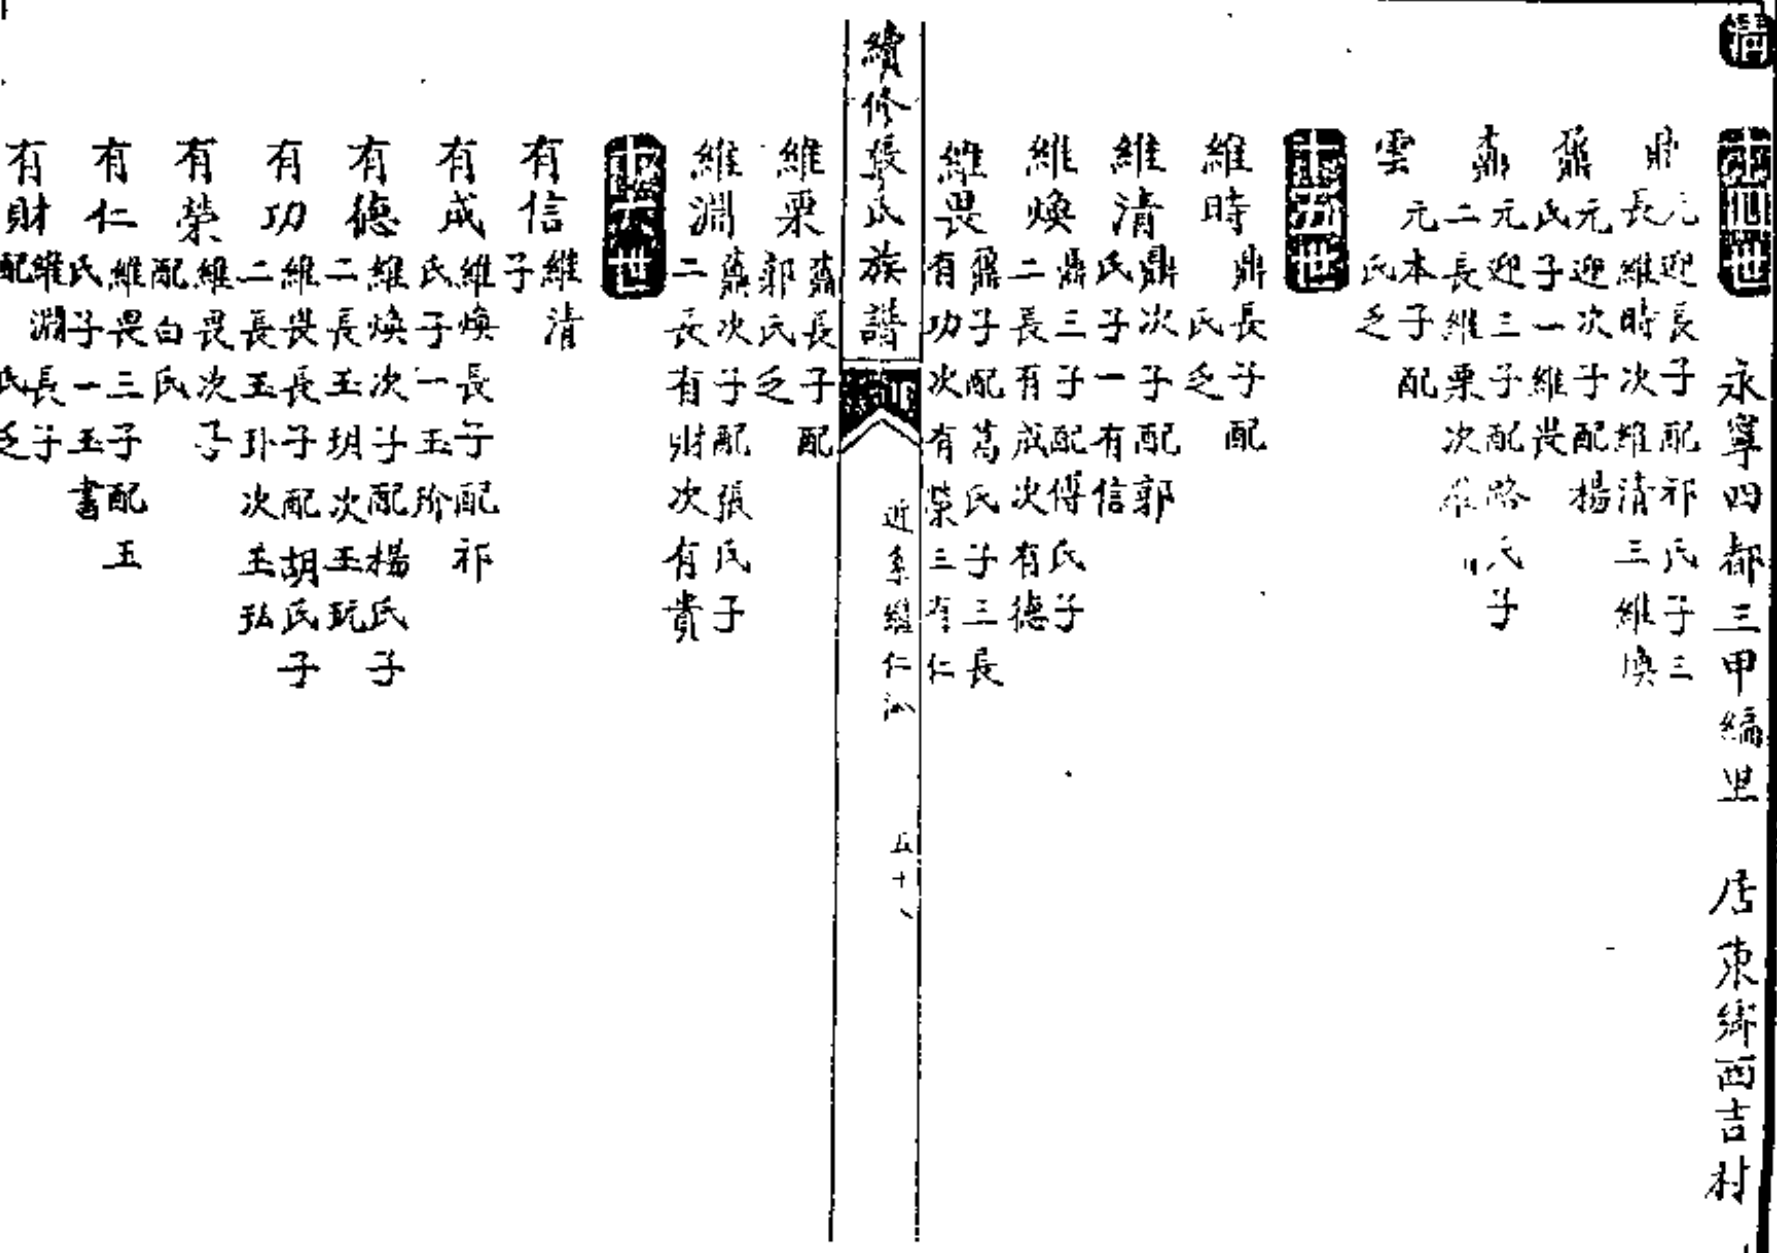 清
十四世 永寧四都三甲編里 居東鄉西吉村
鼎 元迎長子配祁氏子三
長維時次維清三維煥
鼐 元迎次子配楊
氏子一維畏
鼒 元迎三子配路氏子
二長維栗次維
雲 元本子配
氏乏
十五世
維時 鼎長子配
氏乏
維清 鼎次子配郭
氏子一有信
維煥 鼎三子配傅氏子
二長有成次有德
維畏 鼐子配葛氏子三長
有功次有榮三有仁
續修張氏族譜 近系繼仁派 五十八
維栗 鼒長子配
郭氏乏
維淵 鼒次子配張氏子
二長有財次有貴
十六世
有信 維清
子
有成 維煥長子配祁
氏子一玉玠
有德 維煥次子配楊氏子
二長玉玥次玉玩
有功 維畏長子配胡氏子
二長玉卦次玉弘
有榮 維畏次子
配白氏
有仁 維畏三子配王
氏子一玉書
有財 維淵長子
配 氏乏